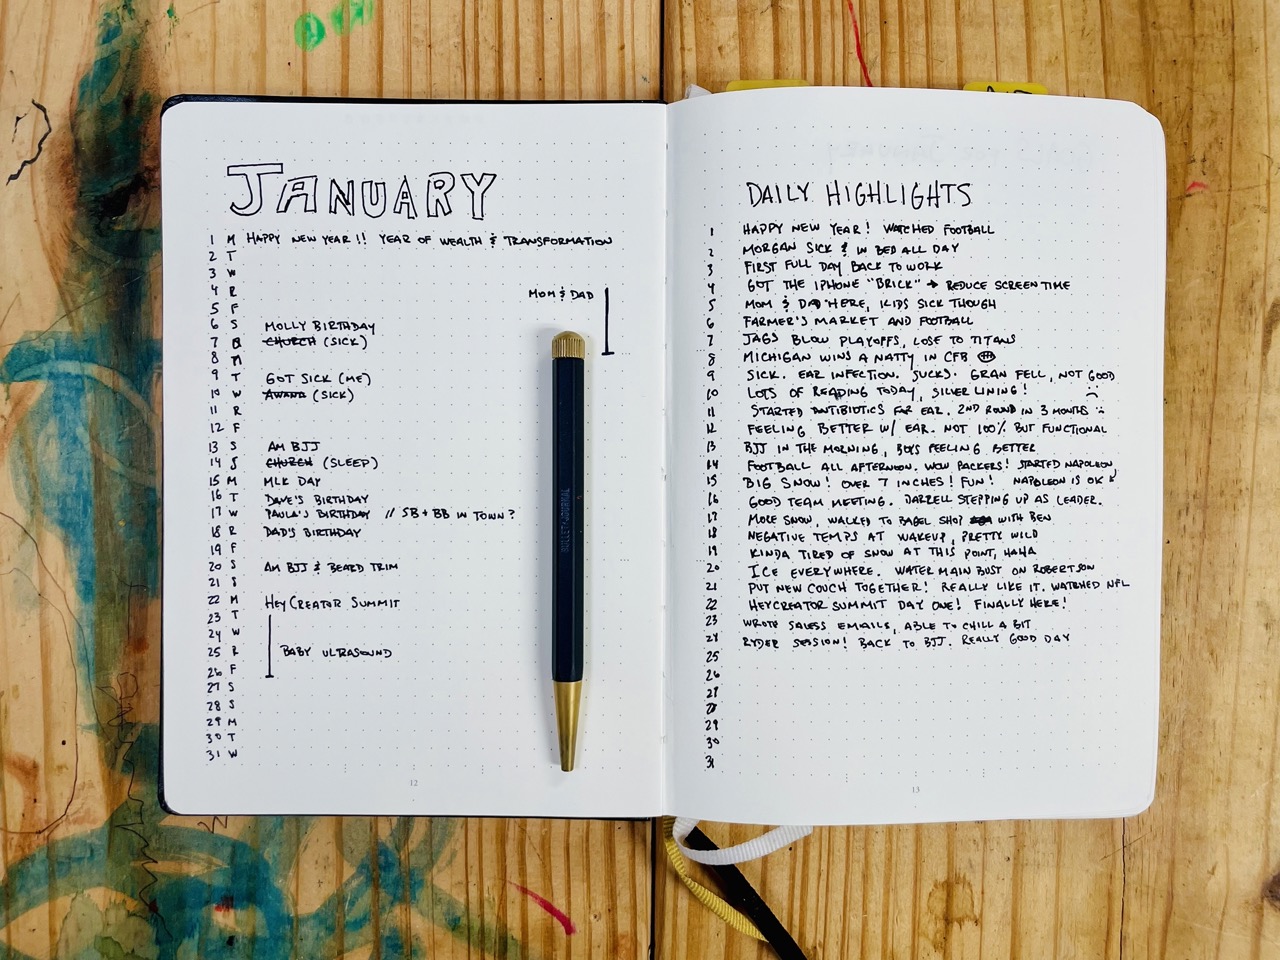 JANUARY
1 M HAPPY NEW YEAR!! YEAR OF WEALTH & TRANSFORMATION
2 T
3 W
4 R MOM & DAD
5 F
6 S MOLLY BIRTHDAY
7 CHURCH (SICK)
8 M
9 T GOT SICK (ME)
10 W (SICK)
11 R
12 F
13 S AM BJJ
14 S CHURCH (SLEEP)
15 M MLK DAY
16 T DAVE'S BIRTHDAY
17 W PAULA'S BIRTHDAY // SB + BB IN TOWN?
18 R DAD'S BIRTHDAY
19 F
20 S AM BJJ & BEARD TRIM
21 S
22 M HEYCREATOR SUMMIT
23 T
24 W
25 R BABY ULTRASOUND
26 F
27 S
28 S
29 M
30 T
31 W
12
BULLET JOURNAL
DAILY HIGHLIGHTS
1 HAPPY NEW YEAR! WATCHED FOOTBALL
2 MORGAN SICK & IN BED ALL DAY
3 FIRST FULL DAY BACK TO WORK
4 GOT THE IPHONE "BRICK" → REDUCE SCREEN TIME
5 MOM & DAD HERE, KIDS SICK THOUGH
6 FARMER'S MARKET AND FOOTBALL
7 JAGS BLOW PLAYOFFS, LOSE TO TITANS
8 MICHIGAN WINS A NATTY IN CFB
9 SICK. EAR INFECTION. SUCKS. GRAN FELL, NOT GOOD
10 LOTS OF READING TODAY, SILVER LINING! :(
11 STARTED ANTIBIOTICS FOR EAR. 2ND ROUND IN 3 MONTHS
12 FEELING BETTER W/ EAR. NOT 100% BUT FUNCTIONAL
13 BJJ IN THE MORNING, BOYS FEELING BETTER
14 FOOTBALL ALL AFTERNOON. WOW PACKERS! STARTED NAPOLEON
15 BIG SNOW! OVER 7 INCHES! FUN! NAPOLEON IS OK
16 GOOD TEAM MEETING. DARRELL STEPPING UP AS LEADER.
17 MORE SNOW, WALKED TO BAGEL SHOP WITH BEN
18 NEGATIVE TEMPS AT WAKEUP, PRETTY WILD
19 KINDA TIRED OF SNOW AT THIS POINT, HAHA
20 ICE EVERYWHERE. WATER MAIN BUST ON ROBERTSON
21 PUT NEW COUCH TOGETHER! REALLY LIKE IT. WATCHED NFL
22 HEYCREATOR SUMMIT DAY ONE! FINALLY HERE!
23 WROTE SALES EMAILS, ABLE TO CHILL A BIT
24 RYDER SESSION! BACK TO BJJ. REALLY GOOD DAY
25
26
27
28
29
30
31
13